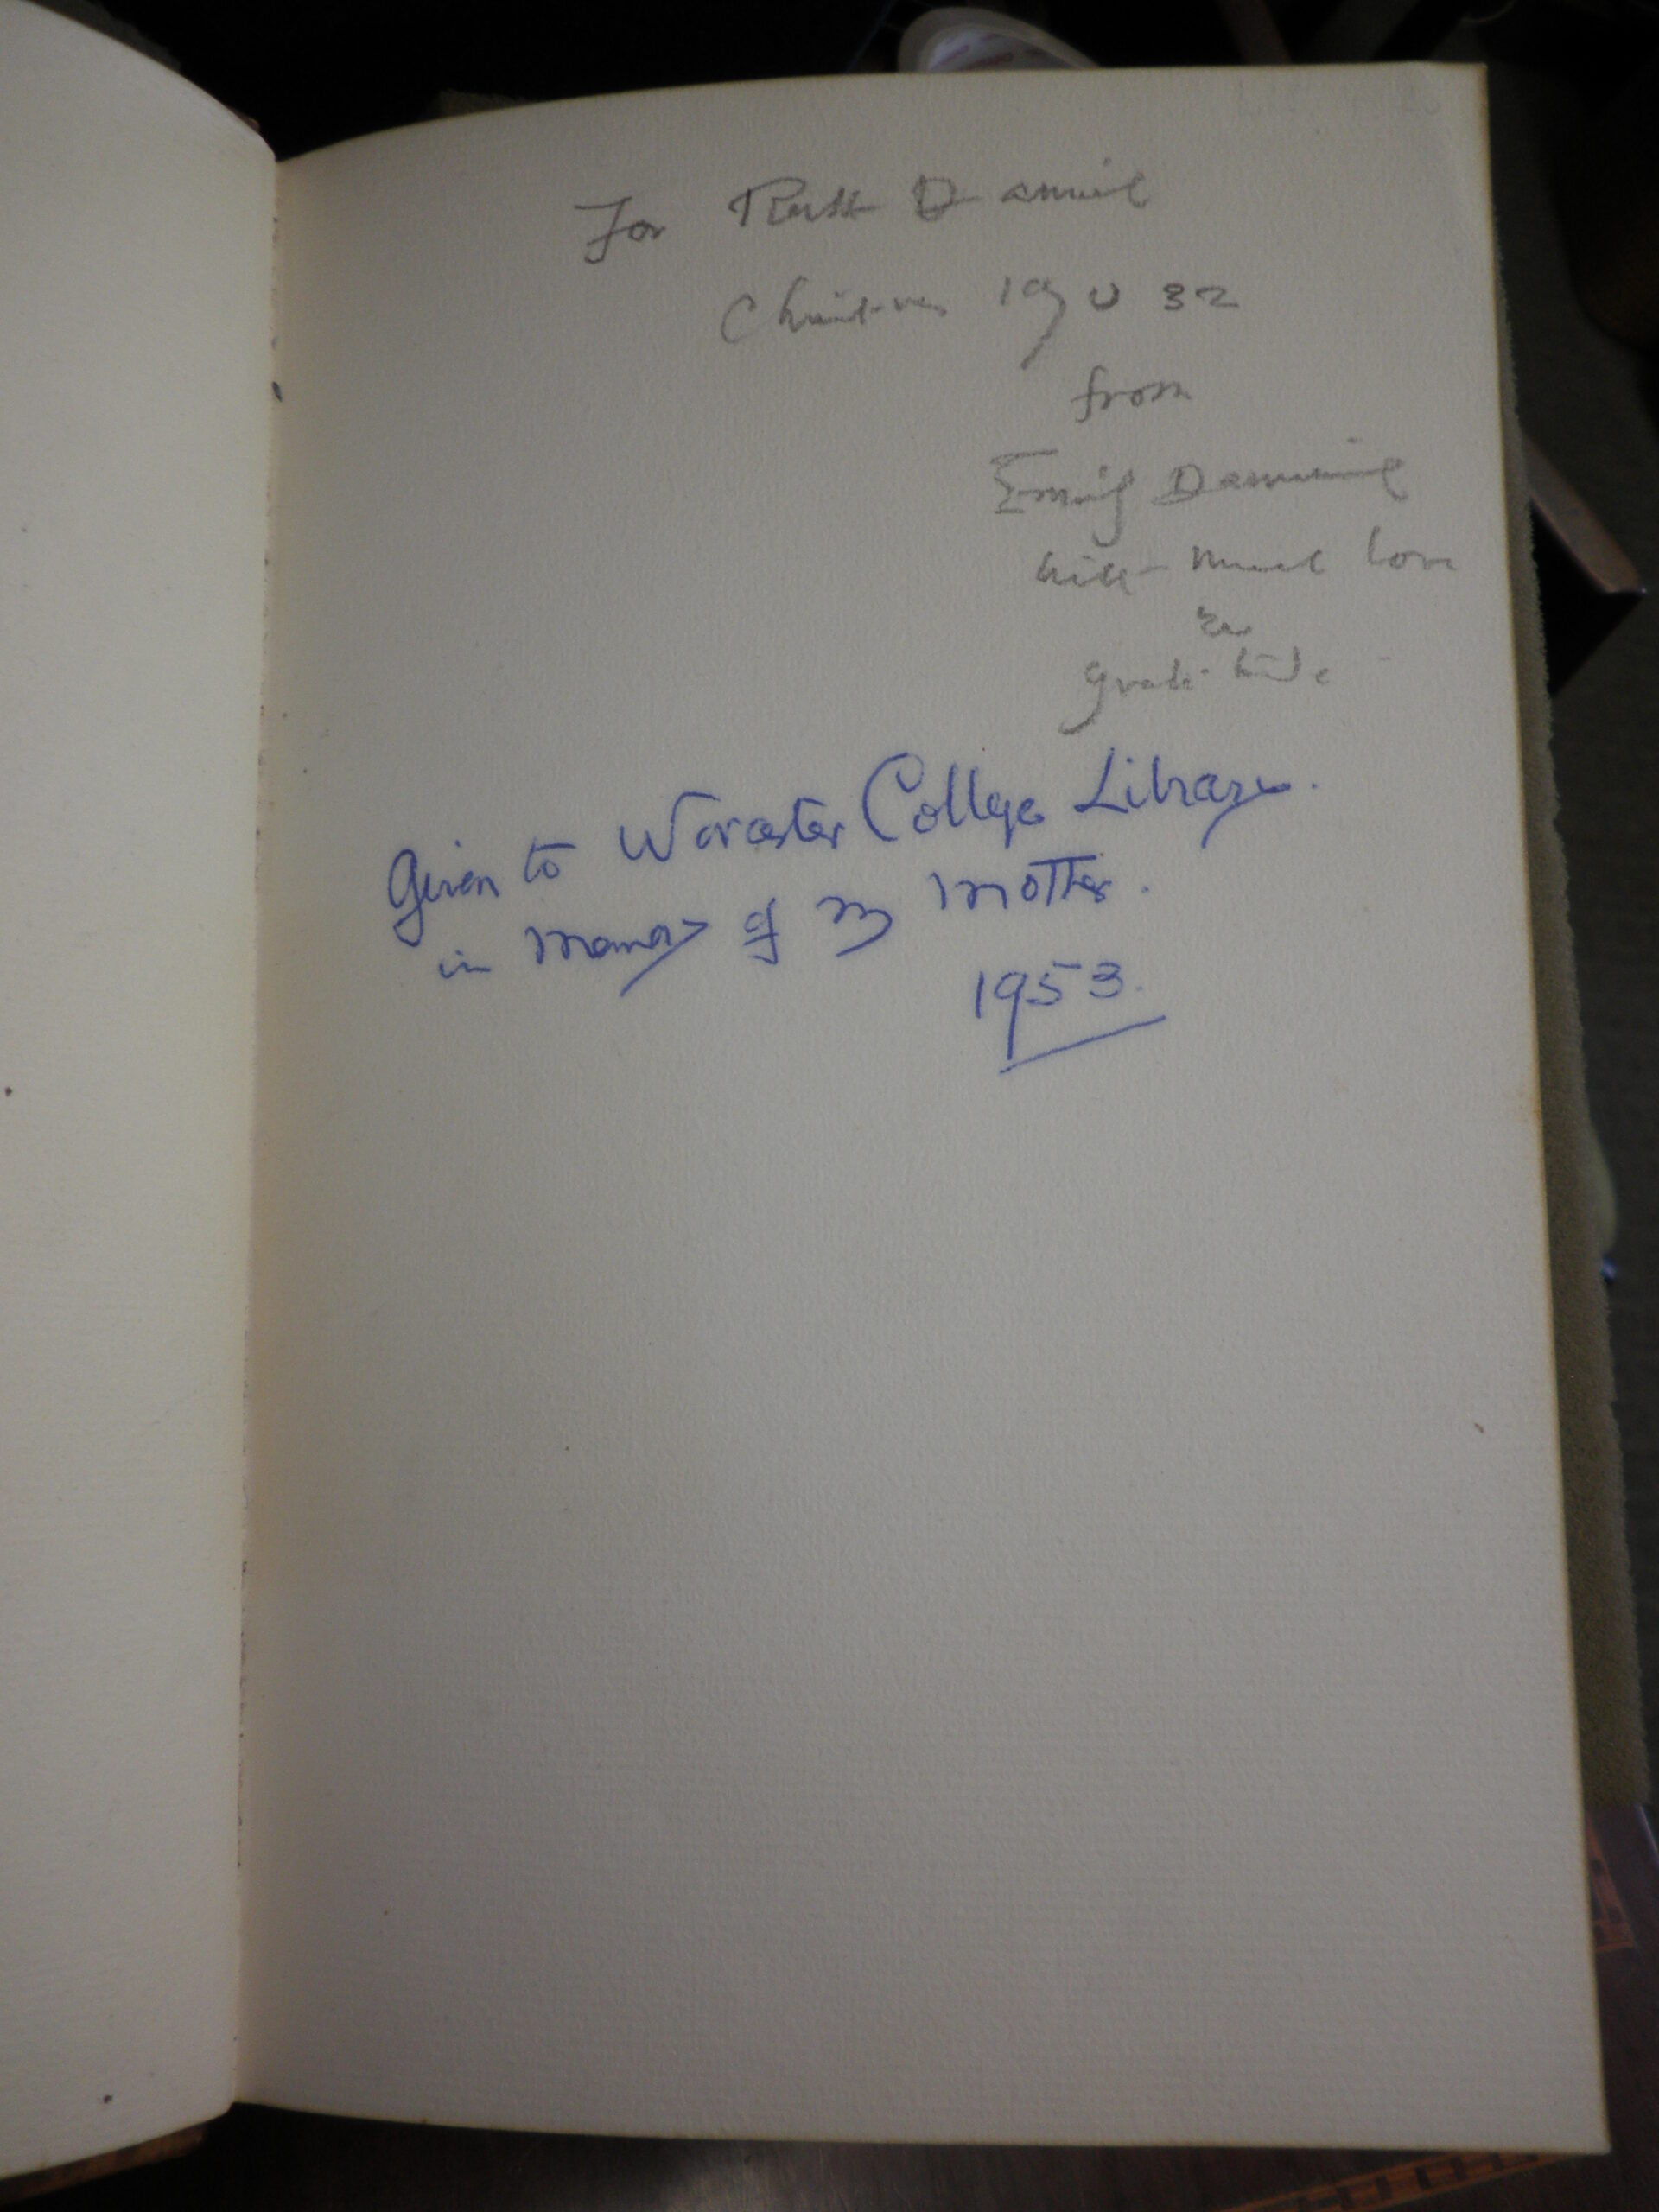 For Ruth Daniel
Christmas 19032
from
Emily Daniel
with much love
&
gratitude
Given to Worcester College Library.
in Memory of my Mother.
1953.